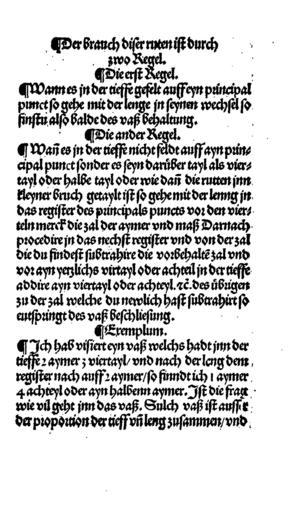 ¶Der brauch diser ruten ist durch
zwo Regel.
¶Die erst Regel.
¶Wann es jn der tieffe gefelt auff eyn principal
punct so gehe mit der lenge jn seynen wechsel so
finstu also balde des vaß behaltung.
¶Die ander Regel.
¶Wan̄ es jn der tieffe nicht feldt auff ayn prin⸗
cipal punct sonder es seyn darüber tayl als vier⸗
tayl oder halbe tayl oder wie dan̄ die rutten jnn
kleyner bruch getaylt ist so gehe mit der lenng jn
das register des principals puncts vor den vier⸗
teln merck die zal der aymer vnd maß Darnach
procedire jn das nechst register vnd von der zal
die du findest subtrahire die vorbehaltē zal vnd
vor ayn yerzlichs virtayl oder achteil jn der tieffe
addire ayn viertayl oder achteyl. ꝛc̄. des übrigen
zu der zal welche du newlich hast subtrahirt so
entspringt des vaß beschliesung.
¶Exemplum.
¶Ich hab visiert eyn vaß welchs hadt jnn der
tieffe 2 aymer 3 viertayl/ vnd nach der leng dem
register nach auff 2 aymer/ so finndt ich 1 aymer
4 achteyl oder ayn halbenn aymer. Ist die frag
wie vil geht jnn das vaß. Sulch vaß ist auss
der proportion der tieff vn̄ leng zusammen/ vnd